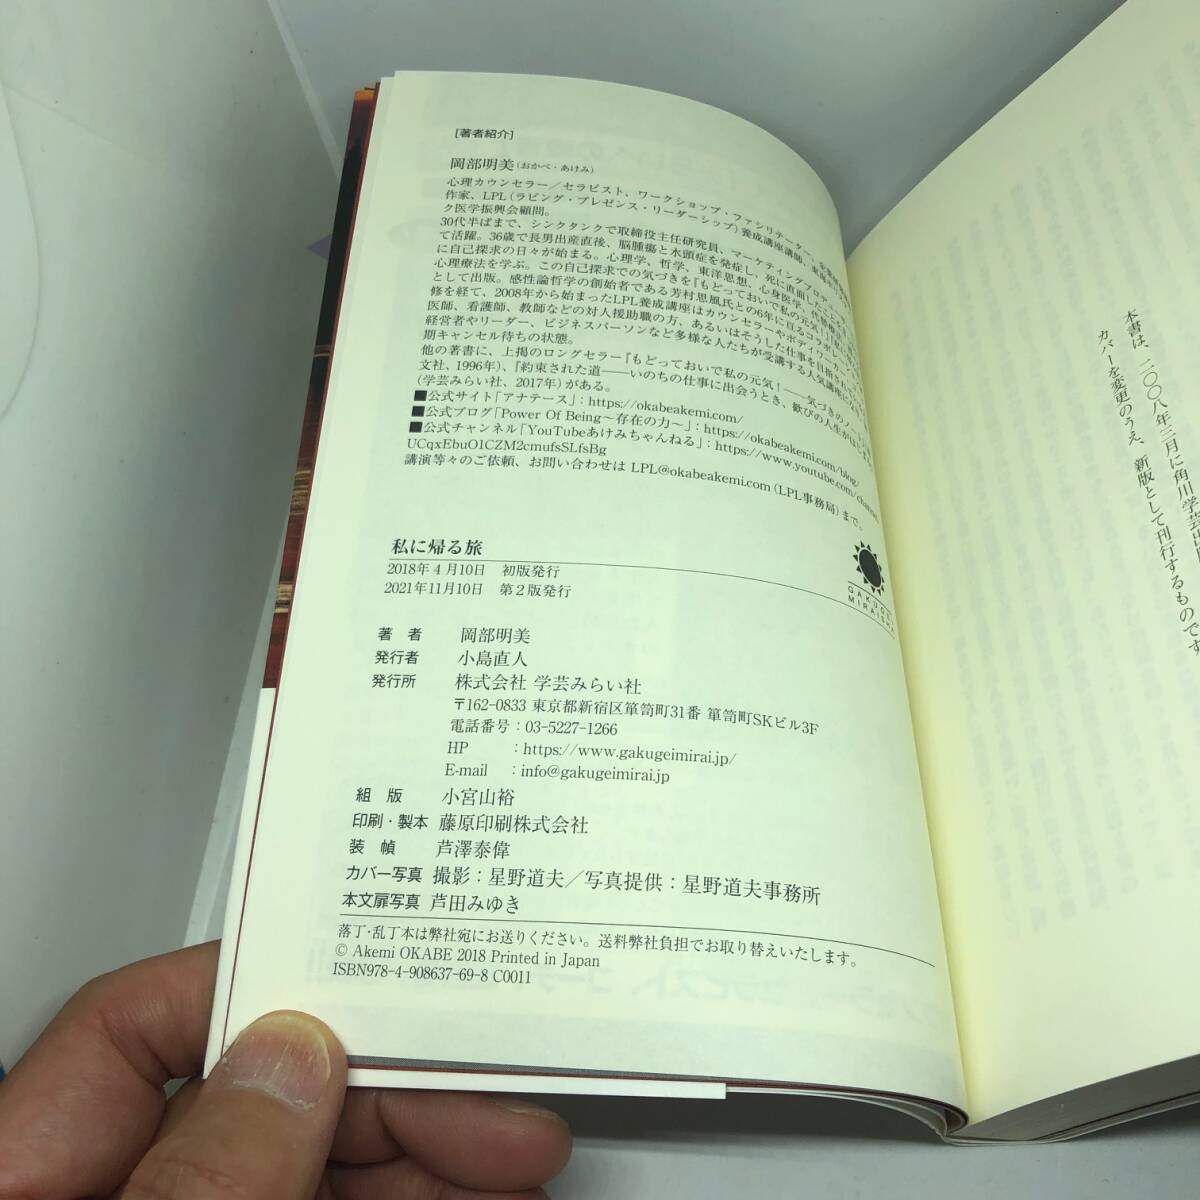 [著者紹介]
岡部明美(おかべ・あけみ)
心理カウンセラー／セラピスト、ワークショップ・ファシリテーター、
作家、LPL(ラビング・プレゼンス・リーダーシップ)養成講座講師、
ク医学振興会顧問。
30代半ばまで、シンクタンクで取締役主任研究員、マーケティングプロデ
て活躍。36歳で長男出産直後、脳腫瘍と水頭症を発症し、死に直面したことを
に自己探求の日々が始まる。心理学、哲学、東洋思想、心身医学、
心理療法を学ぶ。この自己探求での気づきを『もどっておいで私の元気！
として出版。感性論哲学の創始者である芳村思風氏との6年に亘るコラボ
修を経て、2008年から始まったLPL養成講座はカウンセラーやボディワーカー、
医師、看護師、教師などの対人援助職の方、あるいはそうした仕事を目指
経営者やリーダー、ビジネスパーソンなど多様な人たちが受講する人気講座
期キャンセル待ちの状態。
他の著書に、上掲のロングセラー『もどっておいで私の元気！――気づきのノート
文社、1996年)、『約束された道――いのちの仕事に出会うとき、歓びの人生が
(学芸みらい社、2017年)がある。
■公式サイト「アナテース」：https://okabeakemi.com/
■公式ブログ「Power Of Being〜存在の力〜」：https://okabeakemi.com/blog/
■公式チャンネル「YouTubeあけみちゃんねる」：https://www.youtube.com/channe
UCqxEbuO1CZM2cmufsSLfsBg
講演等々のご依頼、お問い合わせは LPL@okabeakemi.com (LPL事務局) まで。
私に帰る旅
2018年4月10日 初版発行
2021年11月10日 第2版発行
GAKUGEI
MIRAISHA
著 者 岡部明美
発行者 小島直人
発行所 株式会社 学芸みらい社
〒162-0833 東京都新宿区箪笥町31番 箪笥町SKビル3F
電話番号：03-5227-1266
HP ：https://www.gakugeimirai.jp/
E-mail ：info@gakugeimirai.jp
組 版 小宮山裕
印刷・製本 藤原印刷株式会社
装 幀 芦澤泰偉
カバー写真 撮影：星野道夫／写真提供：星野道夫事務所
本文扉写真 芦田みゆき
落丁・乱丁本は弊社宛にお送りください。送料弊社負担でお取り替えいたします。
© Akemi OKABE 2018 Printed in Japan
ISBN978-4-908637-69-8 C0011
本書は、二〇〇八年三月に角川学芸出
カバーを変更のうえ、新版として刊行するものです